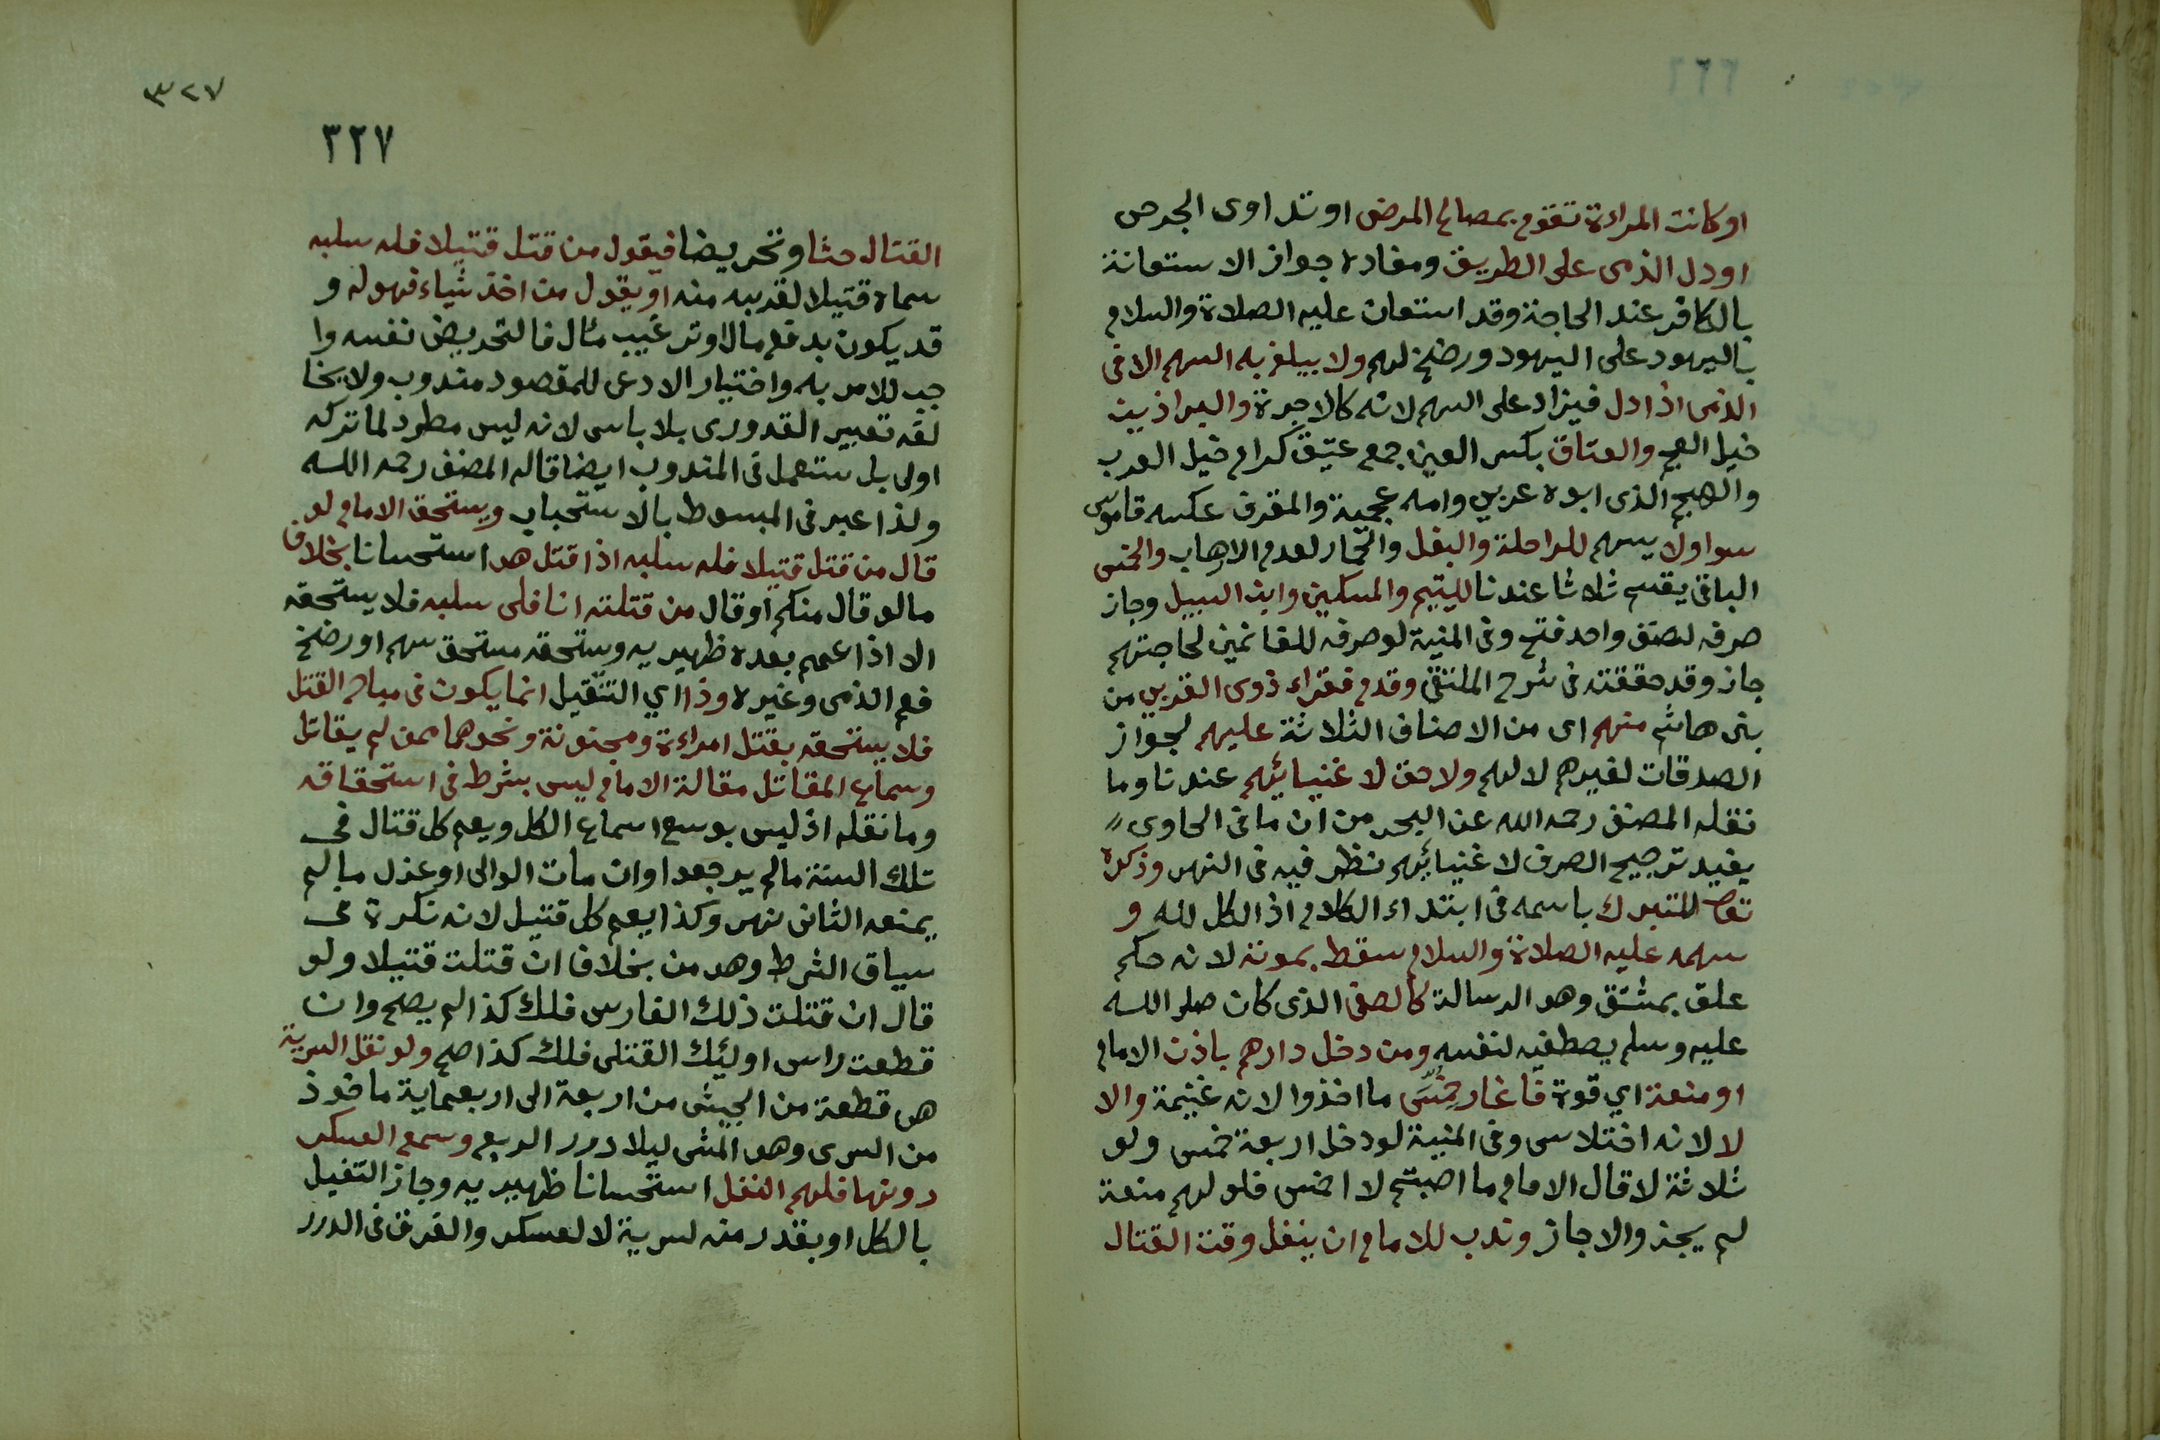 او كانت المراءة تقوم بمصالح المرضى او تداوى الجرحى
او دل الذمى على الطريق ومفاده جواز الاستعانة
بالكافر عند الحاجة وقد استعان عليه الصلاة والسلام
باليهود على اليهود ورضخ لهم ولا يبلغ به السهم الا فى
الذمى اذا دل فيزاد على السهم لانه كالاجرة والبراذين
خيل العجم والعتاق بكسر العين جمع عتيق كرام خيل العرب
والهجين الذى ابوه عربي وامه عجمية والمقرف عكسه قاموس
سوا ولا يسهم للراحلة والبغل والحمار لعدم الارهاب والخمس
الباقى يقسم ثلاثا عندنا لليتيم والمسكين وابن السبيل وجاز
صرفه لصنف واحد فتح وفى المنية لو صرفه للغانمين لحاجتهم
جاز وقد حققته فى شرح الملتقى وقدم فقراء ذوى القربي من
بنى هاشم منهم اى من الاصناف الثلاثة عليهم لجواز
الصدقات لغيرهم لا لهم ولا حق لاغنيائهم عندنا وما
نقله المصنف رحمه الله عن البحر من ان ما فى الحاوى
يفيد ترجيح الصرف لاغنيائهم نظر فيه فى النهر وذكره
تعا للتبرك باسمه فى ابتداء الكلام اذ الكل لله و
سهمه عليه الصلاة والسلام سقط بموته لانه حكم
علق بمشتق وهو الرسالة كالصفى الذى كان صلى الله
عليه وسلم يصطفيه لنفسه ومن دخل دارهم باذن الامام
او منعة اي قوة فاغار خمس ما اخذوا لانه غنيمة والا
لا لانه اختلاس وفى المنية لو دخل اربعة خمس ولو
ثلاثة لا قال الامام ما اصبتم لا اخمس فلو لهم منعة
لم يجز والا جاز وندب للامام ان ينفل وقت القتال
٣٢٧
٣٢٧
القتال حثا وتحريضا فيقول من قتل قتيلا فله سلبه
سماه قتيلا لقربه منه او يقول من اخذ شياء فهو له و
قد يكون بدفع مال او ترغيب مال فالتحريض نفسه وا
جب للامر به واختيار الادعى للمقصود مندوب ولا يخا
لفه تعبير القدورى بلا باس لانه ليس مطرد لما تركه
اولى بل ستعمل فى المندوب ايضا قاله المصنف رحمه الله
ولذا عبر فى المبسوط بالاستحباب ويستحق الامام لو
قال من قتل قتيلا فله سلبه اذا قتل هو استحسانا بخلاف
ما لو قال منكم او قال من قتلته انا فلى سلبه فلا يستحقه
الا اذا عمم بعده ظهيريه ويستحقه مستحق سهم او رضخ
فعم الذمى وغيره وذا اي التنفيل انما يكون فى مباح القتل
فلا يستحقه بقتل امراءة ومجنونة ونحوهما ممن لم يقاتل
وسماع المقاتل مقالة الامام ليس بشرط فى استحقاقه
وما نفله اذ ليس بوسع اسماع الكل ويعم كل قتال فى
تلك السنة مالم يرجعوا وان مات الوالى او عزل ما لم
يمنعه الثانى نهر وكذا يعم كل قتيل لانه نكرة فى
سياق الشرط وهو من بخلاف ان قتلت قتيلا ولو
قال ان قتلت ذلك الفارس فلك كذا لم يصح وان
قطعت راس اوليئك القتلى فلك كذا صح ولو نفل السرية
هى قطعة من الجيش من اربعة الى اربعماية ماخوذ
من السرى وهو المشى ليلا درر الربع وسمع العسكر
دونها فلهم النفل استحسانا ظهيريه وجاز التفيل
بالكل او بقدر منه لسرية لا لعسكر والفرق فى الدرر